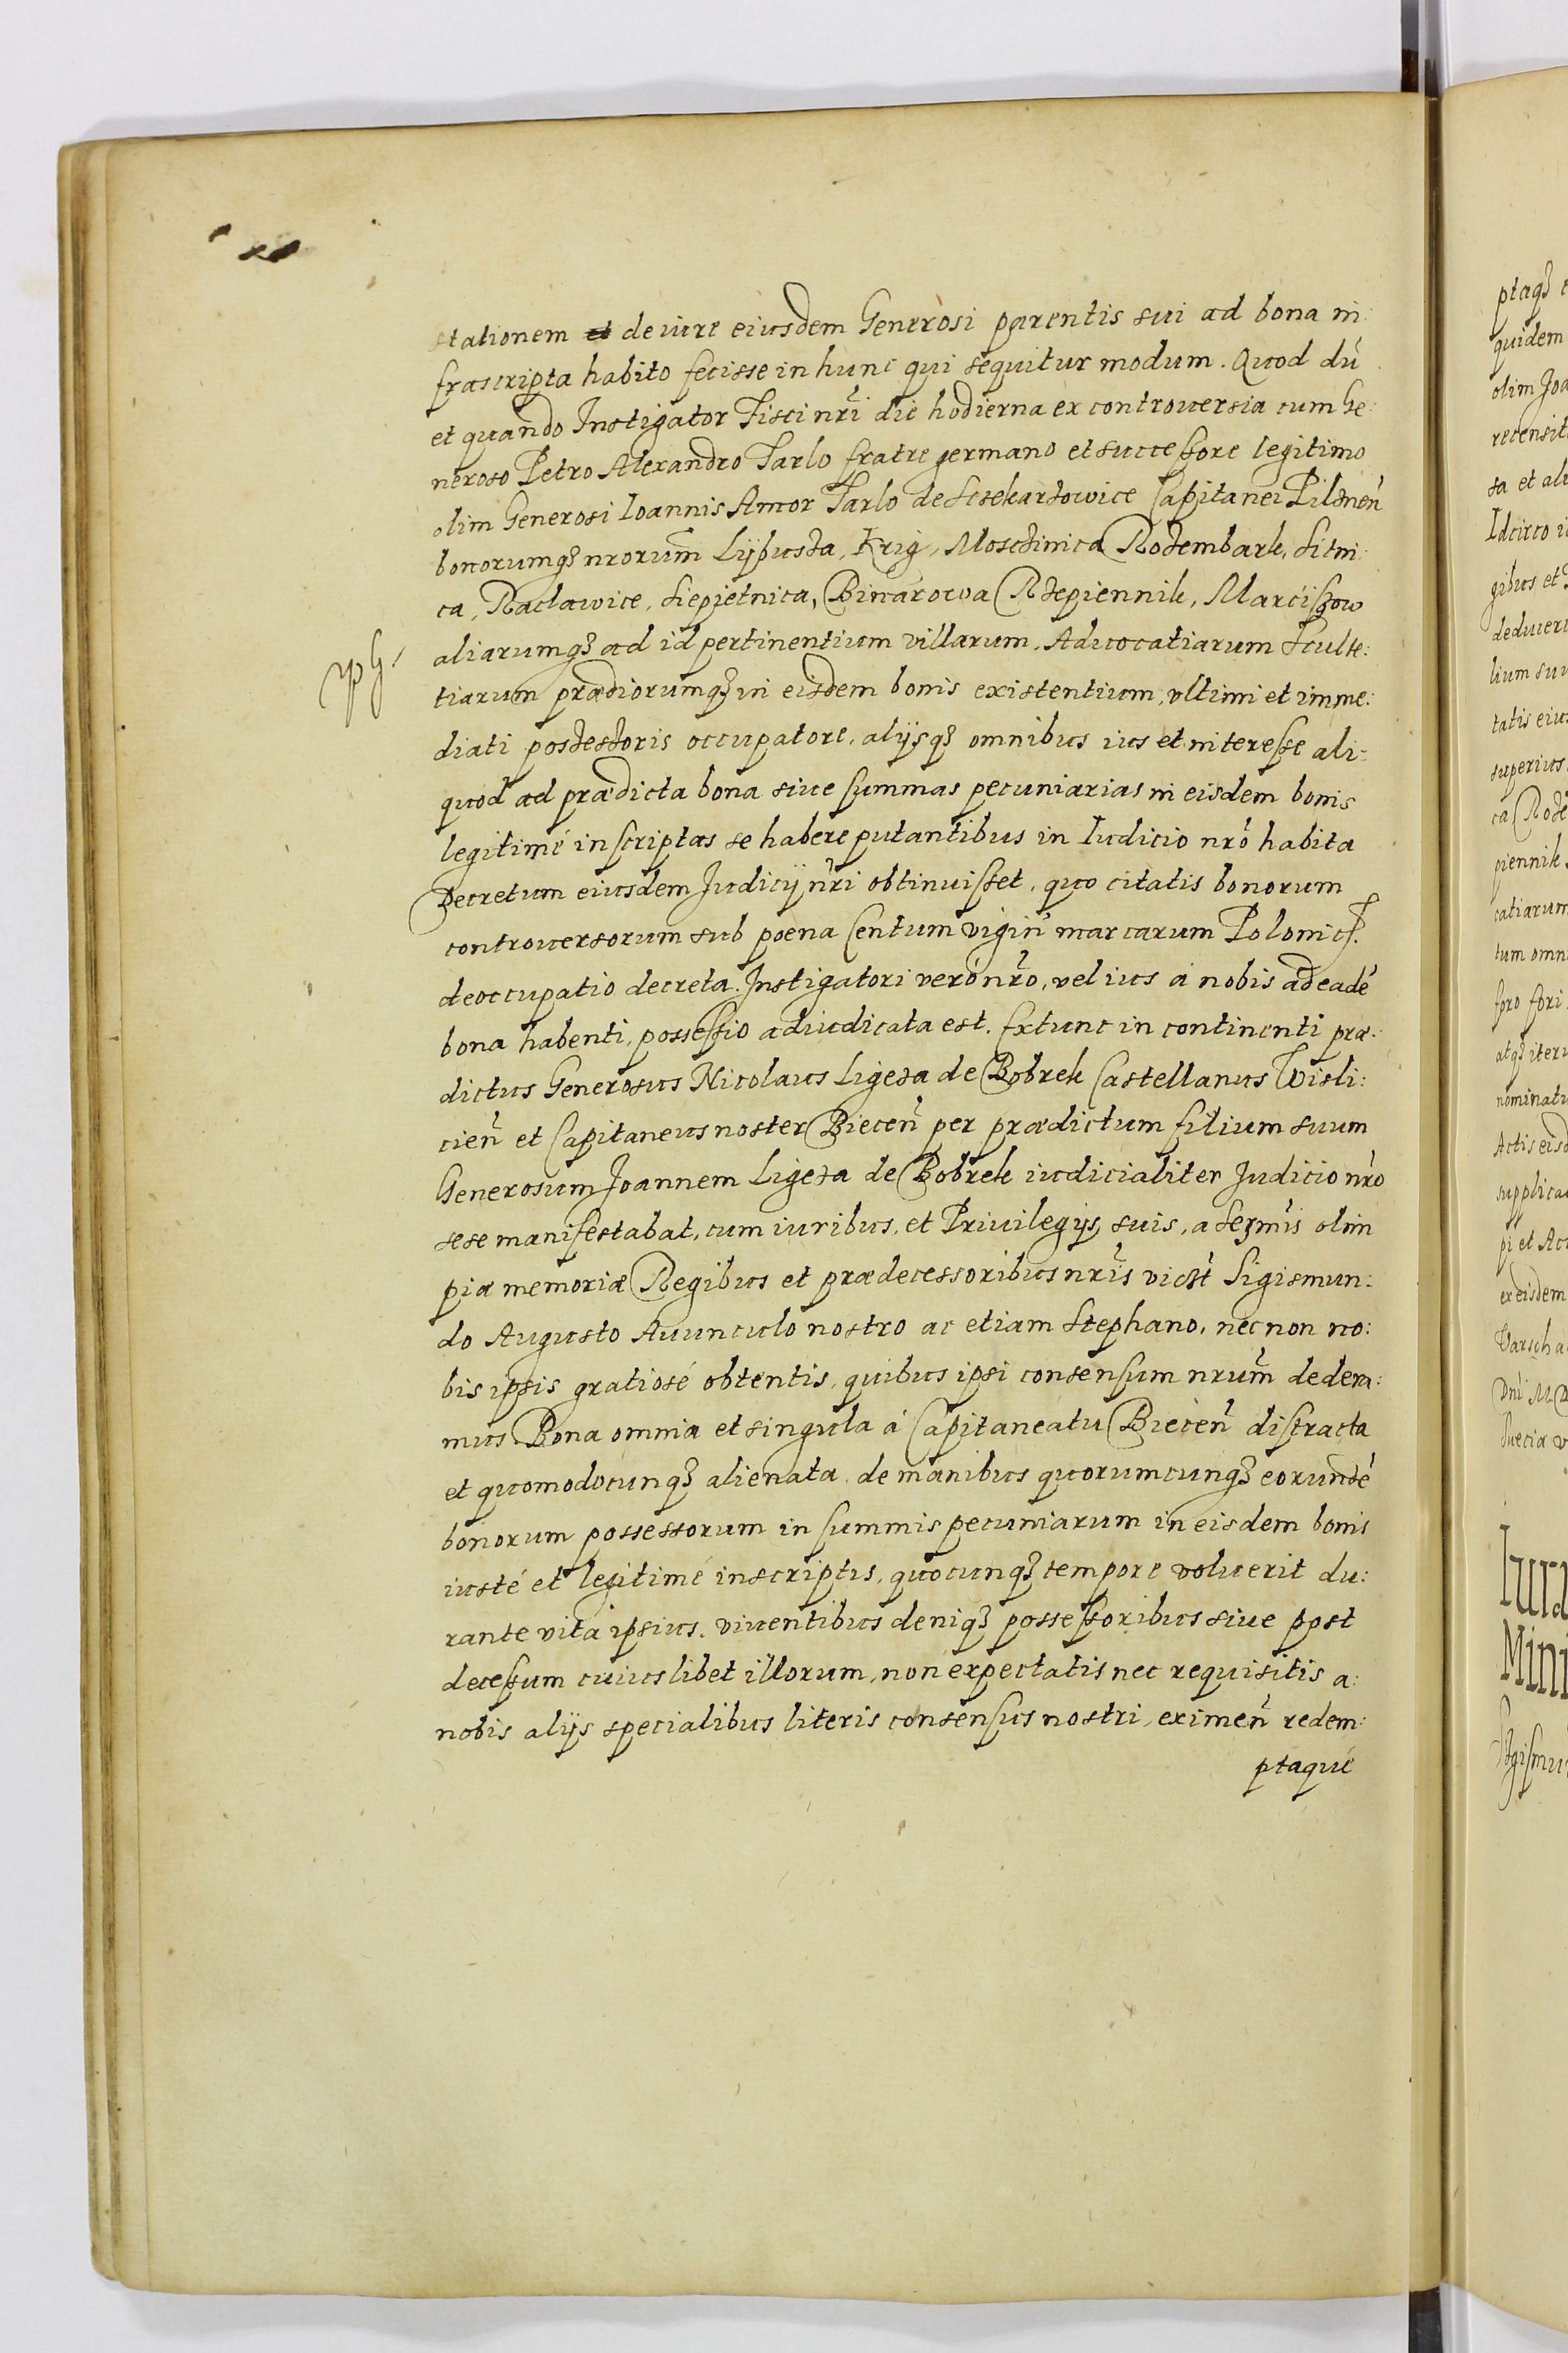 stationem et de iure eiusdem Generosi parentis sui ad bona in:
frascripta habito fecisse in hunc qui sequitur modum. Quod dũ
et quando Instigator Fisci nr̃i die hodierna ex controuersia cum Ge:
neroso Petro Alexandro Tarlo fratre germano et successore legitimo
olim Generosi Ioannis Amor Tarlo de Sczekarzowice Capitanei Pilznen̄
bonorumq3 nrorum̃ Lypuska, Krig, Mosczinica Rozembark, Sitni:
ca, Raclawice, Siepietnica, Binarowa Rzepiennik, Marciszow
aliarumq3 ad id pertinentium villarum. Aduocatiarum Sculte:
tiarum prædiorumq3 in eisdem bonis existentium, vltimi et imme:
diati possessoris occupatore, alijsq3 omnibus ius et interesse ali:
quod ad prædicta bona siue summas pecuniarias in eisdem bonis
legitimé inscriptas se habere putantibus in Iudicio nr̃o habita
Decretum eiusdem Judicij nr̃i obtinuisset, quo citatis bonorum
controuersorum sub poena Centum vigin̄ marcarum Polonic̃.
deoccupatio decreta. Instigatori veró nr̃o, vel ius á nobis ad eadẽ
bona habenti, possessio adiudicata est. Extunc in continenti præ:
dictus Generosus Nicolaus Ligeza de Bobrek Castellanus Wisli:
cien̄ et Capitaneus noster Biecen̄ per prædictum filium suum
Generosum Joannem Ligeza de Bobrek iudicialiter Judicio nr̃o
sese manifestabat, cum iuribus, et Priuilegijs suis, a Serm̃is olim
piæ memoriæ Regibus et prædecessoribus nr̃is vic3t Sigismun:
do Augusto Auunculo nostro ac etiam Stephano, nec non no:
bis ipsis gratiosé obtentis, quibus ipsi consensum nrum̃ dedera:
mus. Bona omnia et singula á Capitaneatu Biecen̄ distracta
et quomodocunq3 alienata de manibus quorumcunq3 eorundẽ
bonorum possessorum in summis pecuniarum in eisdem bonis
iusté et legitimé inscriptis, quocunq3 tempore voluerit du:
rante vita ipsius. viuentibus deniq3 possessoribus siue post
decessum cuiuslibet illorum, non expectatis nec requisitis a:
nobis alijs specialibus literis consensus nostri, eximen̄ redem:
ptaqué
ptaq3
quidem
olim Joa
recensit
sa et ali
Idcirco
gibus et
lium su
tatis eius
superius
piennik
catiarum
tum omn
foro fori
atq3 iteru
nominatu
Actis eisd
supplica
pi et Ac
ex eisdem
Varscha
Suetiæ
Iura
Mini